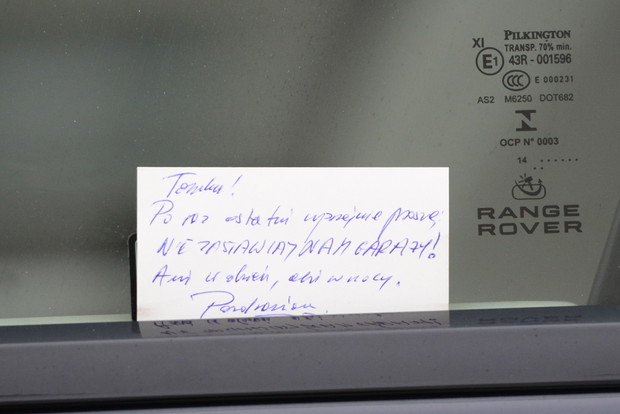 PILKINGTON
XI TRANSP. 70% min.
E1 43R - 001596
CCC E 000231
AS2 M6250 DOT682
OCP N° 0003
14 ......
RANGE
ROVER
Po raz ostatni uprzejmie proszę
NE ZASTAWIAJ NAM GARAŻY!
Ani w dzień, ani w nocy.
Pozdrawiam.